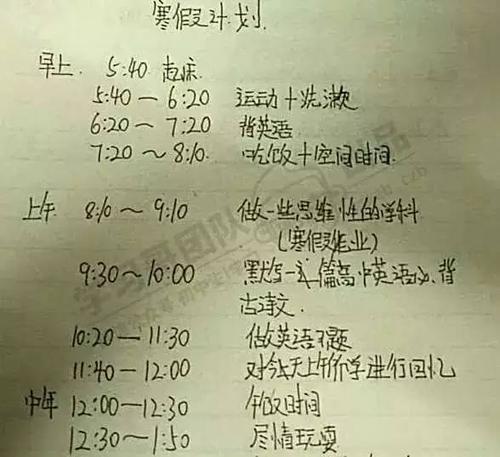 寒假计划
早上 5:40 起床
5:40 — 6:20 运动+洗漱
6:20 — 7:20 背英语
7:20 ~ 8:10 吃饭+空闲时间
上午 8:10 ~ 9:10 做一些思维性的学科
(寒假作业)
9:30 ~ 10:00 默写一篇高中英语、背
古诗文
10:20 — 11:30 做英语习题
11:40 — 12:00 对今天上午所学进行回忆
中午 12:00 — 12:30 午饭时间
12:30 — 1:50 尽情玩耍
学习哥团队出品